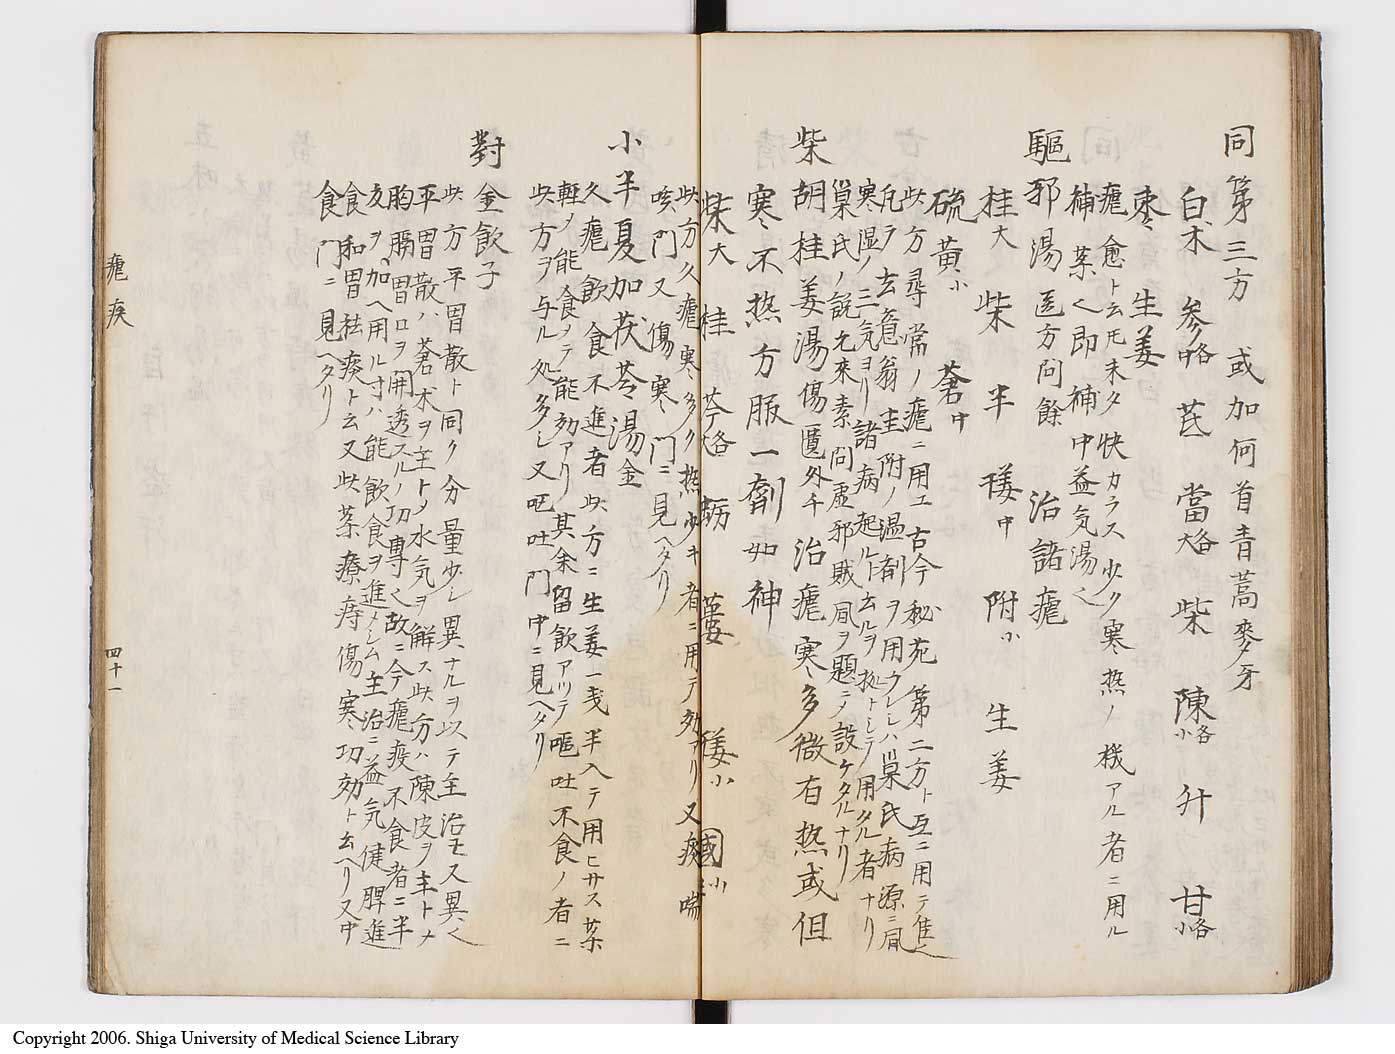 同第三方 或加何首青蒿麥牙
白朮 參中各 芪 當大各 柴 陳小各 升 甘小各
棗 生姜
瘧愈ト云𪜈未タ快カラス少ク寒热ノ機アル者ニ用ル
補茱 即補中益気湯
驅邪湯 医方問餘 治諸瘧
桂大 柴 半 䅋中 附小 生姜
硫黄小 蒼中
此方尋常ノ瘧ニ用エ古今秘苑第二方ト互ニ用テ佳
寒湿ノ三気ヨリ諸病起ル
柴胡桂姜湯 傷匱外千 治瘧寒多微有热或但
寒不热方服一劑如神
柴大 桂 芩 蛎 蔞 姜小 小
此方久瘧寒多ク热少キ者ニ用テ効アリ又痰喘
咳門又傷寒門ニ見ヘタリ
小半夏加茯苓湯 金
久瘧飲食不進者此方ニ生姜一戔半入テ用ヒサス茶
軽メ能食ノテ能効アリ其余留飲アツテ嘔吐不食ノ者ニ
此方ヲ与ル処多シ又呕吐門中ニ見ヘタリ
對金飲子
此方平胃散ト同ク分量少シ異ナルヲ以テ主治モス異
平胃散ハ蒼朮ヲ主トメ水気ヲ解ス此方ハ陳皮ヲ主トメ
胸膈胃口ヲ開透スルノ功專 故ニ今瘧疫不食者ニ半
夏ヲ加ヘ用ル寸ハ能飲食ヲ進メシム主治ニ益気健脾進
食和胃祛痰ト云又此茱療痔傷寒功効ト云ヘリ又中
食門ニ見ヘタリ
瘧疾
四十一
Copyright 2006. Shiga University of Medical Science Library